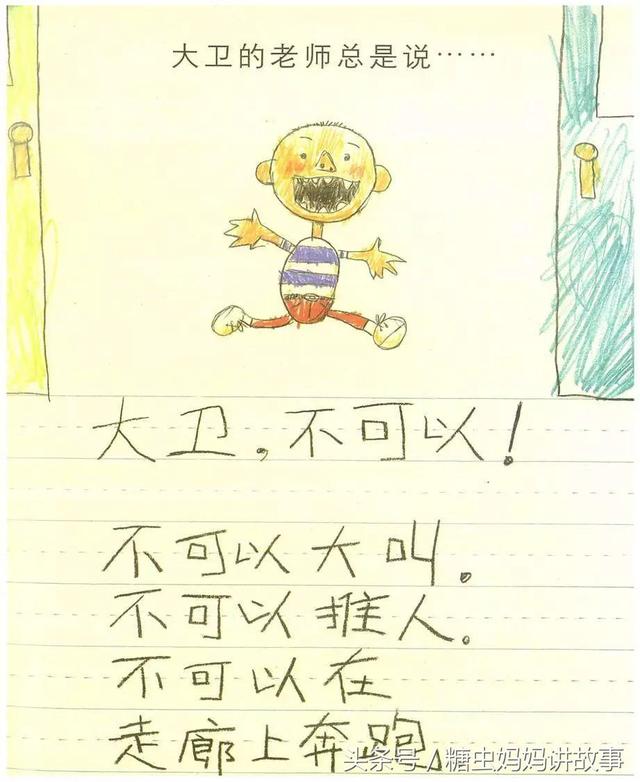 大卫的老师总是说……
大卫，不可以！
不可以大叫。
不可以推人。
不可以在
走廊上奔跑。
头条号/糖虫妈妈讲故事